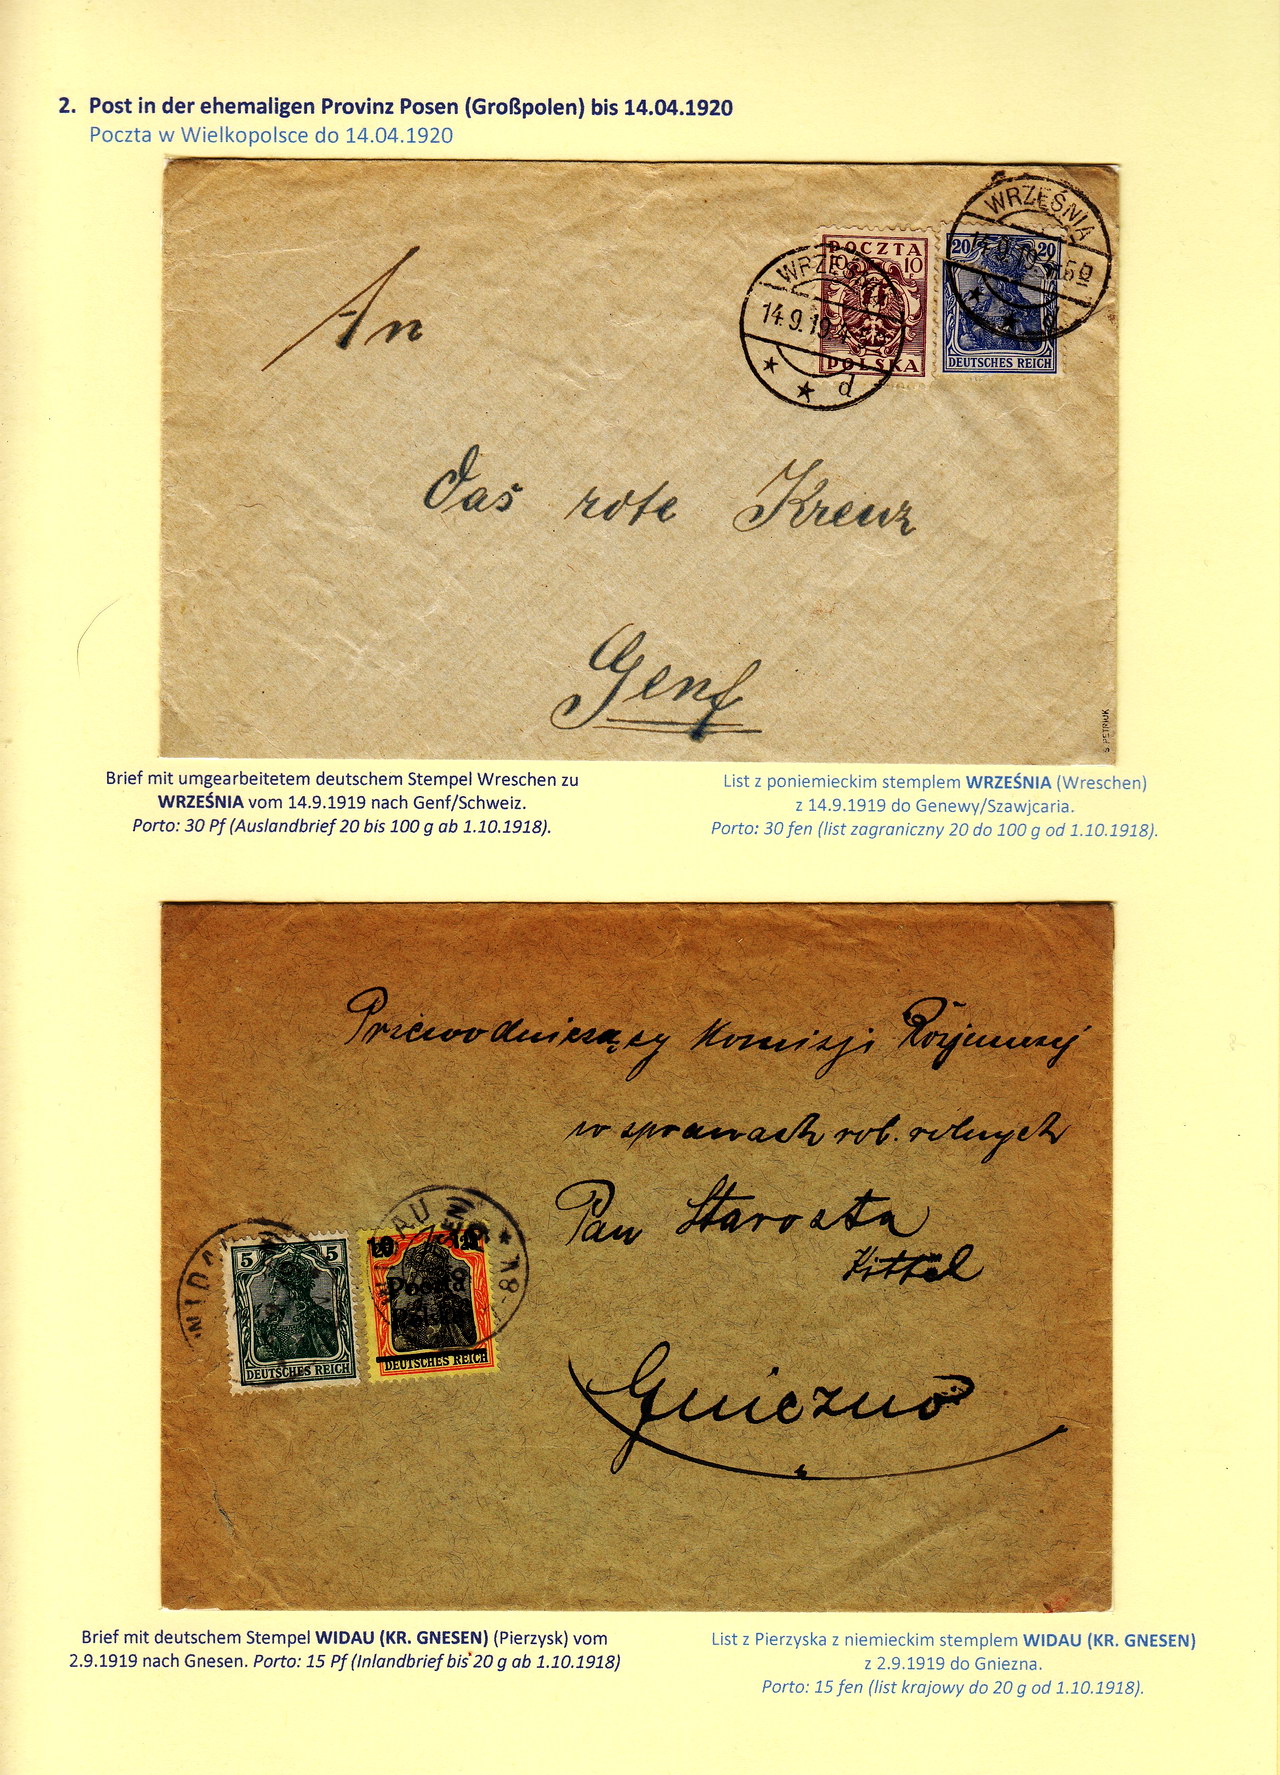 2. Post in der ehemaligen Provinz Posen (Großpolen) bis 14.04.1920
Poczta w Wielkopolsce do 14.04.1920
WRZEŚNIA
20 20
POCZTA
10 10
14.9.19
POLSKA
DEUTSCHES REICH
d
An
Das rote Kreuz
Genf
S. PETRIUK
Brief mit umgearbeitetem deutschem Stempel Wreschen zu
WRZEŚNIA vom 14.9.1919 nach Genf/Schweiz.
Porto: 30 Pf (Auslandbrief 20 bis 100 g ab 1.10.1918).
List z poniemieckim stemplem WRZEŚNIA (Wreschen)
z 14.9.1919 do Genewy/Szawjcaria.
Porto: 30 fen (list zagraniczny 20 do 100 g od 1.10.1918).
Przewodniczący Komisji
w sprawach rob. rolnych
Pan Starosta
Kittel
Gniezno
WIDAU
5 5
10
Poczta
DEUTSCHES REICH
DEUTSCHES REICH
Brief mit deutschem Stempel WIDAU (KR. GNESEN) (Pierzysk) vom
2.9.1919 nach Gnesen. Porto: 15 Pf (Inlandbrief bis 20 g ab 1.10.1918)
List z Pierzyska z niemieckim stemplem WIDAU (KR. GNESEN)
z 2.9.1919 do Gniezna.
Porto: 15 fen (list krajowy do 20 g od 1.10.1918).